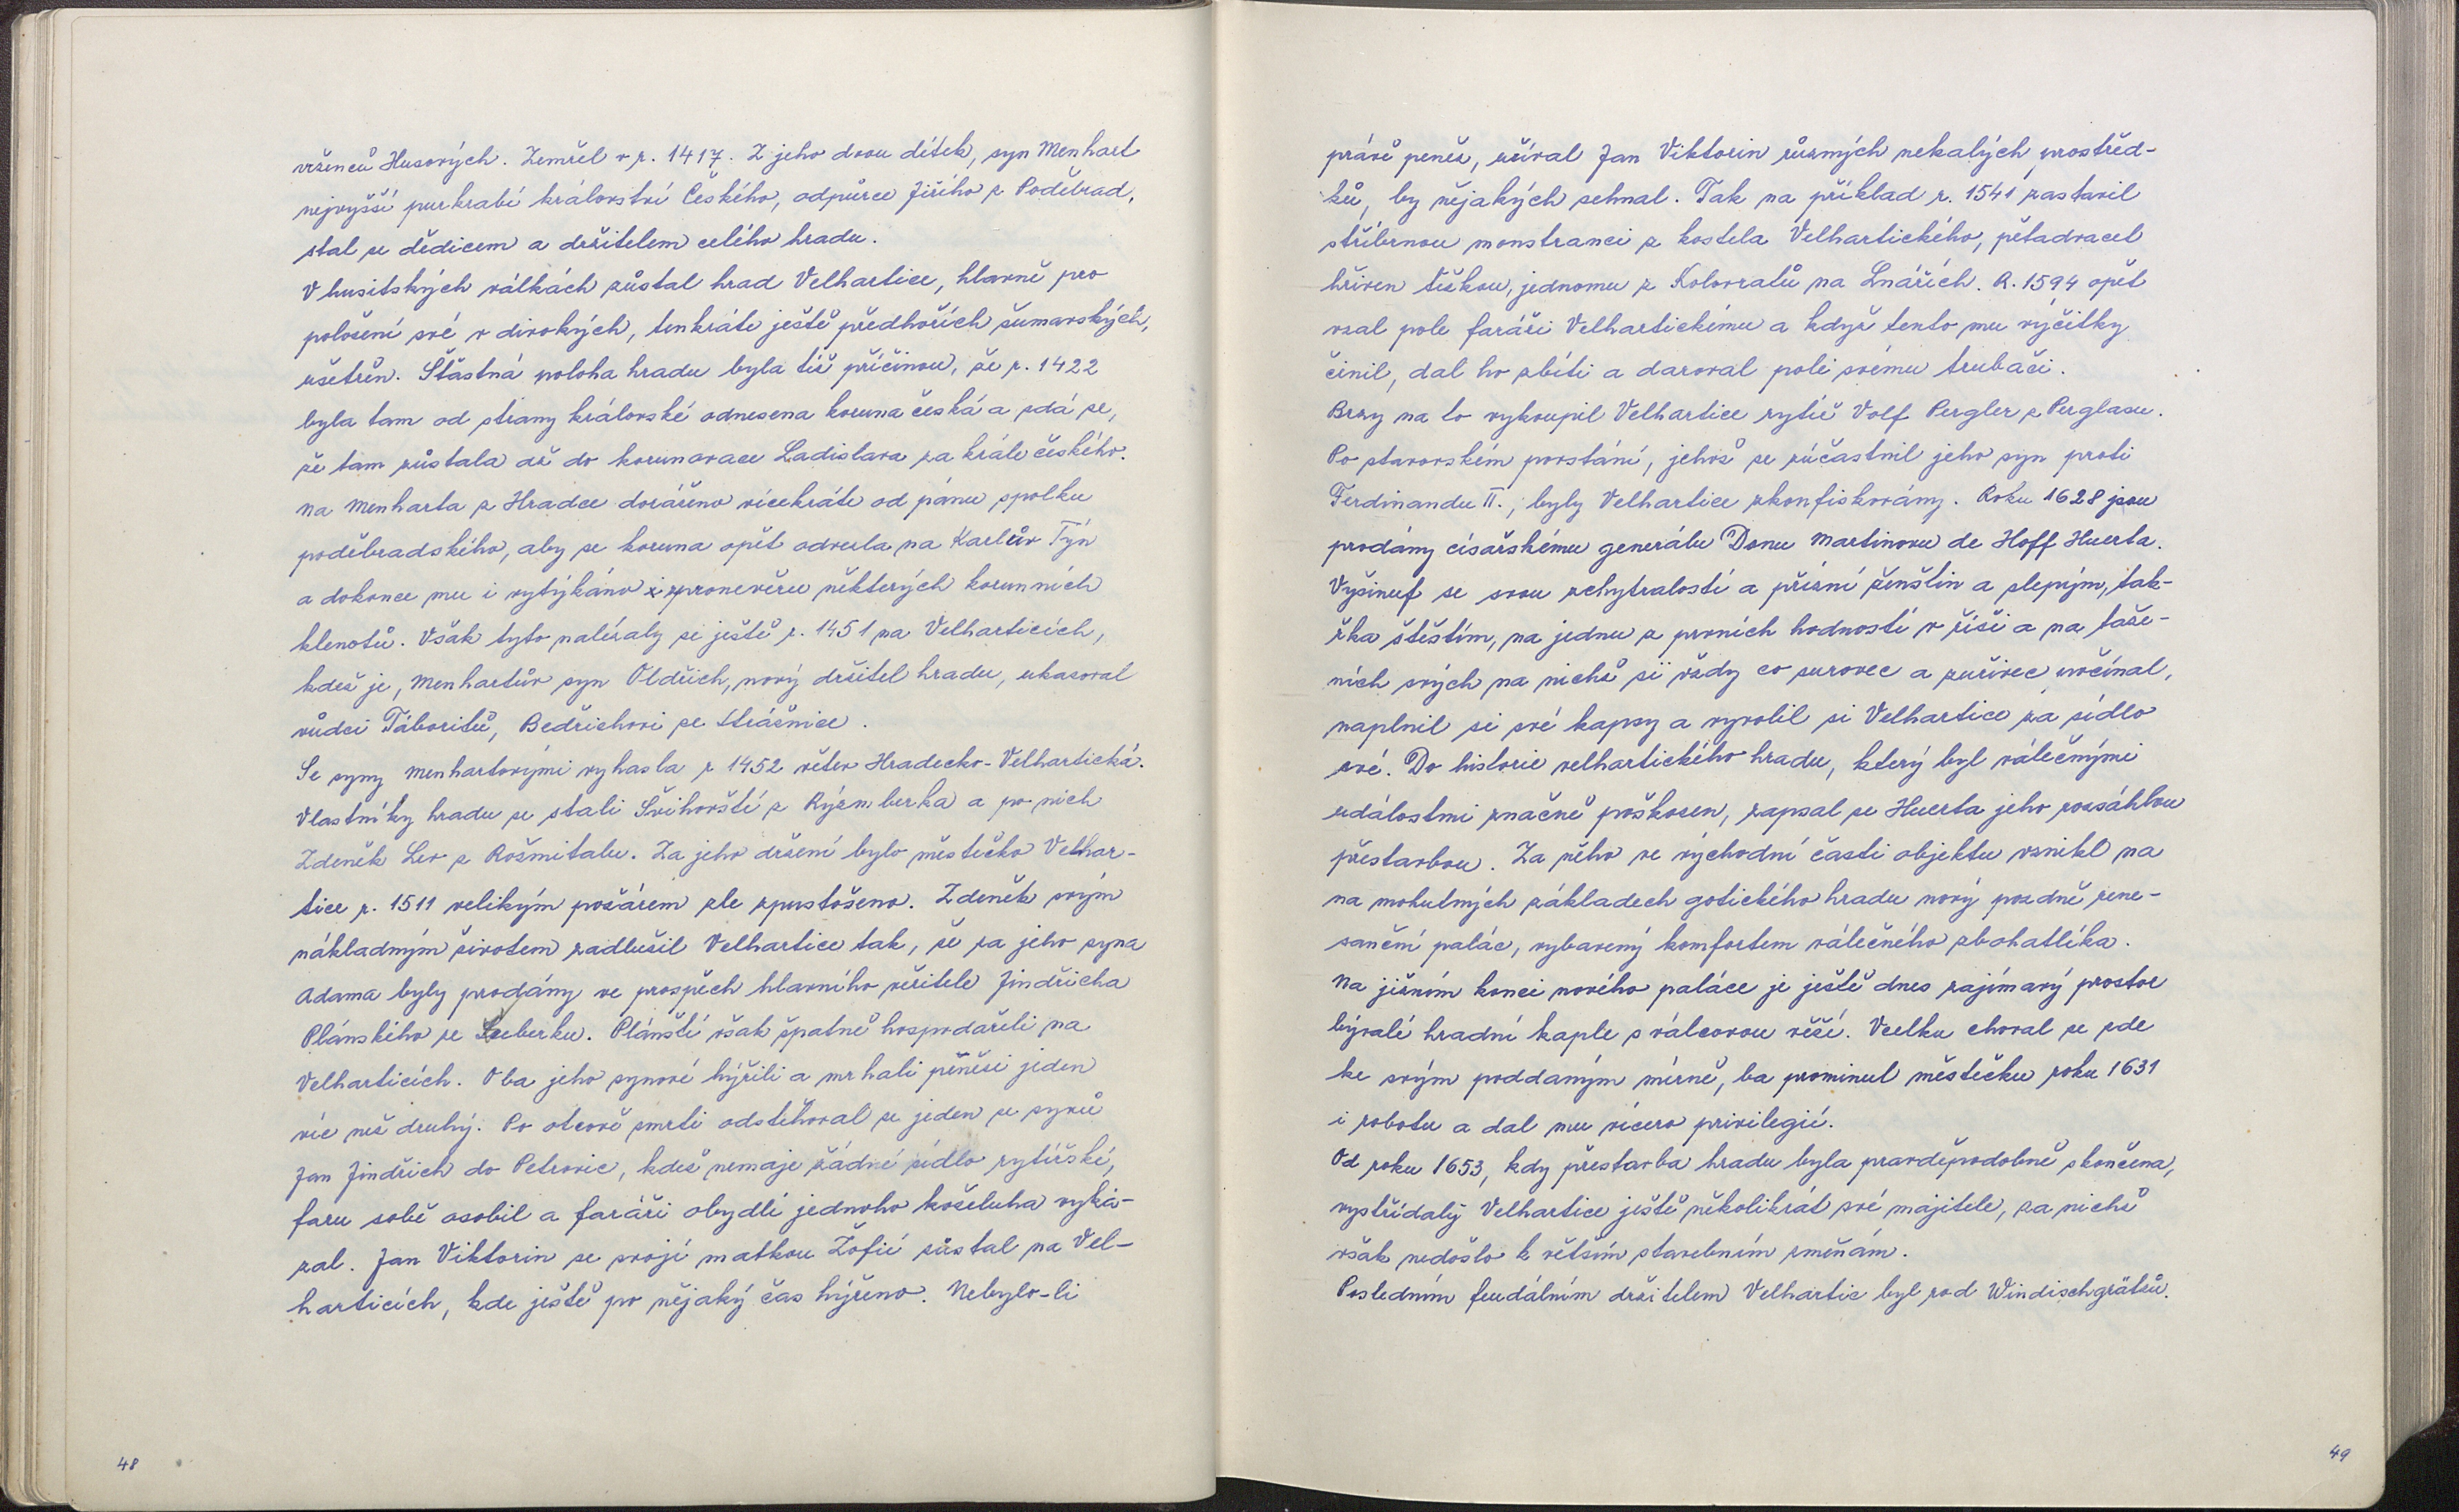 vrženců Husových. Zemřel v r. 1417. Z jeho dvou dítek, syn Menhart
nejvyšší purkrabí království Českého, odpůrce Jiřího z Poděbrad,
stal se dědicem a držitelem celého hradu.
V husitských válkách zůstal hrad Velhartice, hlavně pro
položení své v divokých, tenkráte ještě předhořích šumavských,
ušetřen. Šťastná poloha hradu byla též příčinou, že r. 1422
byla tam od strany královské odnesena koruna česká a zdá se,
že tam zůstala až do korunovace Ladislava za krále českého.
Na Menharta z Hradce doráženo vícekráte od pánu spolku
poděbradského, aby se koruna opět odvezla na Karlův Týn
a dokonce mu i vytýkáno i zpronevěru některých korunních
klenotů. Však tyto nalézaly se ještě r. 1451 na Velharticích,
kdež je, Menhartův syn Oldřich, nový držitel hradu, ukazoval
vůdci Táboritů, Bedřichovi ze Strážnice.
Se syny Menhartovými vyhasla r 1452 větev Hradecko-Velhartická.
Vlastníky hradu se stali Švihovští z Rýzmberka a po nich
Zdeněk Lev z Rožmitalu. Za jeho držení bylo městečko Velhar-
tice r. 1511 velikým požárem zle zpustošeno. Zdeněk svým
nákladným životem zadlužil Velhartice tak, že za jeho syna
Adama byly prodány ve prospěch hlavního věřitele Jindřicha
Plánského ze Seeberku. Plánští však špatně hospodařili na
Velharticích. Oba jeho synové hýřili a mrhali penězi jeden
víc než druhý. Po otcově smrti odstěhoval se jeden ze synů
Jan Jindřich do Petrovic, kdež nemaje žádné sídlo rytířské,
faru sobě osobil a faráři obydlí jednoho koželuha vyká-
zal. Jan Viktorin se svojí matkou Žofií zůstal na Vel-
harticích, kde ještě po nějaký čas hýřeno. Nebylo-li
48
právě peněz, užíval Jan Viktorin různých nekalých prostřed-
ků, by nějakých sehnal. Tak na příklad r. 1541 zastavil
stříbrnou monstranci z kostela Velhartického, pětadvacet
hřiven těžkou, jednomu z Kolovratů na Lnářích. R. 1594 opět
vzal pole faráři Velhartickému a když tento mu výčitky
činil, dal ho zbíti a daroval pole svému trubači.
Brzy na to vykoupil Velhartice rytíř Volf Pergler z Perglasu.
Po stavovském povstání, jehož se zúčastnil jeho syn proti
Ferdinandu II., byly Velhartice zkonfiskovány. Roku 1628 jsou
prodány císařskému generálu Donu Martinovu de Hoff Huerta.
Vyšinuf se svou zchytralostí a přízní ženštin a slepým, tak-
řka štěstím, na jednu z prvních hodností v říši a na taže-
ních svých na nichž si vždy co surovec a zuřivec počínal,
naplnil si své kapsy a vyvolil si Velhartice za sídlo
své. Do historie velhartického hradu, který byl válečnými
událostmi značně poškozen, zapsal se Huerta jeho rozsáhlou
přestavbou. Za něho ve východní části objektu vznikl na
na mohutných základech gotického hradu nový pozdně rene-
sanční palác, vybavený komfortem válečného zbohatlíka.
Na jižním konci nového paláce je ještě dnes zajímavý prostor
bývalé hradní kaple s válcovou věží. Vcelku choval se zde
ke svým poddaným mírně, ba prominul městečku roku 1631
i robotu a dal mu vícero privilegií.
Od roku 1653, kdy přestavba hradu byla pravděpodobně skončena,
vystřídaly Velhartice ještě několikrát své majitele, za nichž
však nedošlo k větším stavebním změnám.
Posledním feudálním držitelem Velhartic byl rod Windischgrätzů.
49